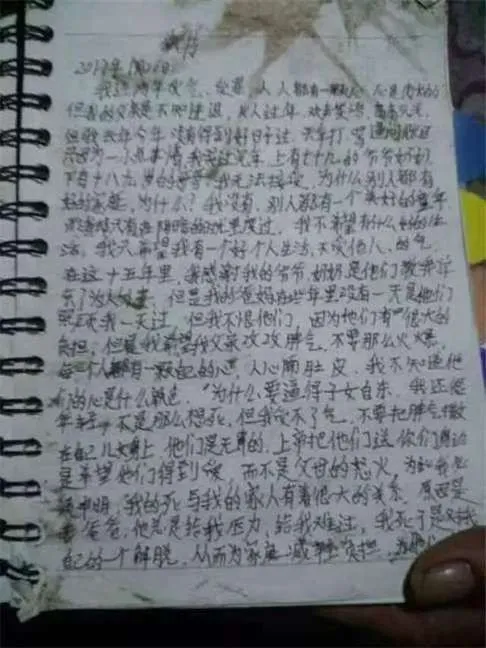 2017年1月26日
我这两年受气，委屈，人人都有一颗心，心是肉长的
但我的父亲是不知进退，别人过年，欢声笑语，喜喜儿儿
但我去年今年没有得到好日子过，天天打骂
只因为一点点事情，我我过完年，上有七十九的爷爷奶奶
下有十八九岁的哥哥，我无法接受，为什么别人都有
好的家庭，为什么？我没有，别人都有一个美好的童年
而我却只有在阴暗的时光里度过，我不希望有什么好的生
活，我只希望我有一个好个人生活，不受他人的气
在这十五年里，我感谢我的爷爷奶奶是他们教我
但是我的爸妈在这些年里没有一天是他们
照顾我一天过，但我不恨他们，因为他们有很大的
负担，但是我希望我父亲改改脾气，不要那么火爆
每一个人都有一颗自己的心，人心隔肚皮，我不知道他
们的心是什么颜色，“为什么要逼得子女自杀，我还很
年轻，不是那么想死，但我受不了气，不要把脾气撒
在自己儿女身上，他们是无辜的，上帝把他们送你们身边
是希望他们得到爱，而不是父母的怒火，为
申明，我的死与我的家人有着很大的关系，原因是
爸爸，他总是给我压力，给我难过，我死了是对我
自己的一个解脱，从而为家庭减轻负担，